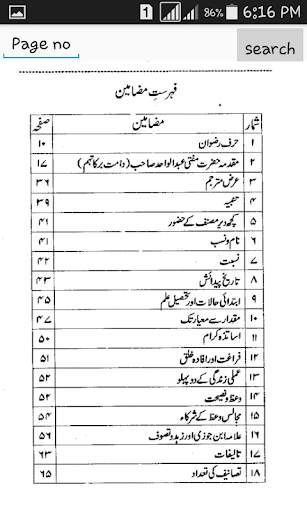 1 86% 6:16 PM
Page no search
فہرستِ مضامین
شمار مضامین صفحہ
۱ حرف رضوان ۱۰
۲ مقدمہ حضرت مفتی عبدالواحد صاحب (دامت برکاتہم) ۱۷
۳ عرض مترجم ۳۶
۴ ۳۹
۵ کچھ دیر مصنف کے حضور ۴۱
۶ نام و نسب ۴۱
۷ نسبت ۴۲
۸ تاریخ پیدائش ۴۳
۹ ابتدائی حالات اور تحصیل علم ۴۵
۱۰ مقدار سے معیار تک ۴۷
۱۱ اساتذہ کرام ۵۰
۱۲ فراغت اور افادہ خلق ۵۱
۱۳ عملی زندگی کے دو پہلو ۵۲
۱۴ وعظ و نصیحت ۵۲
۱۵ مجالس وعظ کے شرکاء ۵۴
۱۶ علامہ ابن جوزی اور زہد و تصوف ۵۶
۱۷ تالیفات ۶۳
۱۸ تصانیف کی تعداد ۶۵